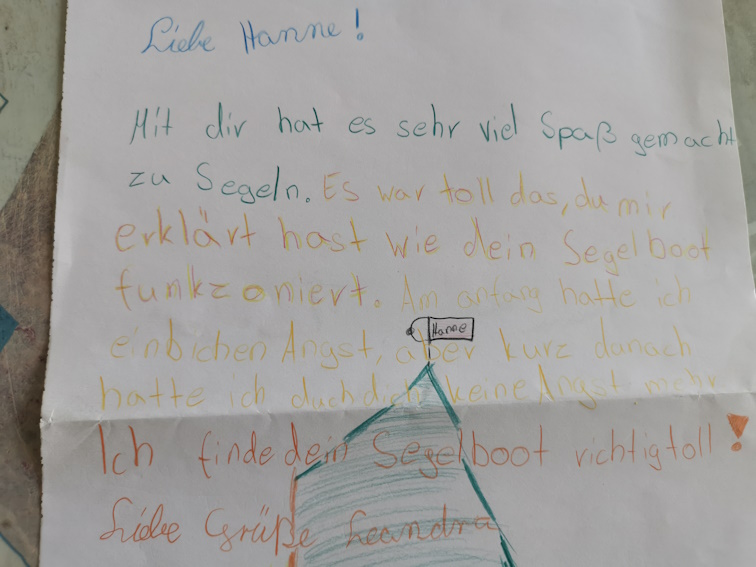 Liebe Hanne!
Mit dir hat es sehr viel Spaß gemacht
zu Segeln. Es war toll das, du mir
erklärt hast wie dein Segelboot
funkzoniert. Am anfang hatte ich
Hanne
einbichen Angst, aber kurz danach
hatte ich duchdich keine Angst mehr
Ich finde dein Segelboot richtig toll!
Liebe Grüße Leandra